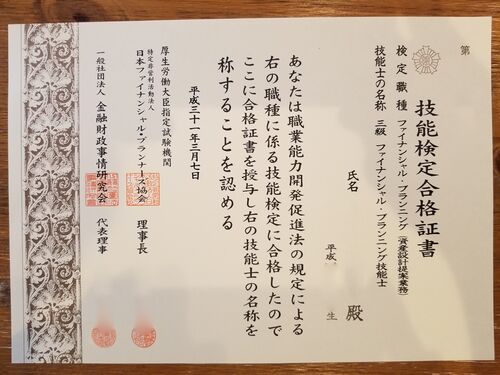 第
技能検定合格証書
検定職種 ファイナンシャル・プランニング(資産設計提案業務)
技能士の名称 三級 ファイナンシャル・プランニング技能士
氏名 殿
平成 生
あなたは職業能力開発促進法の規定による
右の職種に係る技能検定に合格したので
ここに合格証書を授与し右の技能士の名称を
称することを認める
平成三十一年三月七日
厚生労働大臣指定試験機関
特定非営利活動法人
日本ファイナンシャル・プランナーズ協会 理事長
一般社団法人 金融財政事情研究会 代表理事